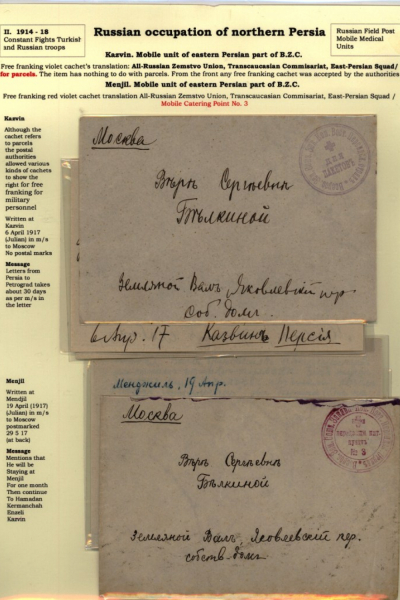 II. 1914 - 18
Constant Fights Turkish
and Russian troops
Russian occupation of northern Persia
Russian Field Post
Mobile Medical
Units
Kazvin. Mobile unit of eastern Persian part of B.Z.C.
Free franking violet cachet's translation: All-Russian Zemstvo Union, Transcaucasian Commisariat, East-Persian Squad/
for parcels. The item has nothing to do with parcels. From the front any free franking cachet was accepted by the authorities
Menjil. Mobile unit of eastern Persian part of B.Z.C.
Free franking red violet cachet translation All-Russian Zemstvo Union, Transcaucasian Commisariat, East-Persian Squad /
Mobile Catering Point No. 3
Kazvin
Although the
cachet refers
to parcels
the postal
authorities
allowed various
kinds of cachets
to show the
right for free
franking for
military
personnel
Written at
Kazvin
6 April 1917
(Julian) in m/s
to Moscow
No postal marks
Message
Letters from
Persia to
Petrograd takes
about 30 days
as per m/s in
the letter
Москва
Вѣрѣ Сергѣевнѣ
Бѣлкиной
Земляной Валъ, Яковлевскій пер
Соб. домъ.
6 Апр. 17 Казвинъ Персія
Менджиль, 19 Апр.
Menjil
Written at
Mendjil
19 April (1917)
(Julian) in m/s
to Moscow
postmarked
29 5 17
(at back)
Message
Mentions that
He will be
Staying at
Menjil
For one month
Then continue
To Hamadan
Kermanchah
Enzeli
Kazvin
Москва
Вѣрѣ Сергѣевнѣ
Бѣлкиной
Земляной Валъ, Яковлевский пер.
собств. домъ.